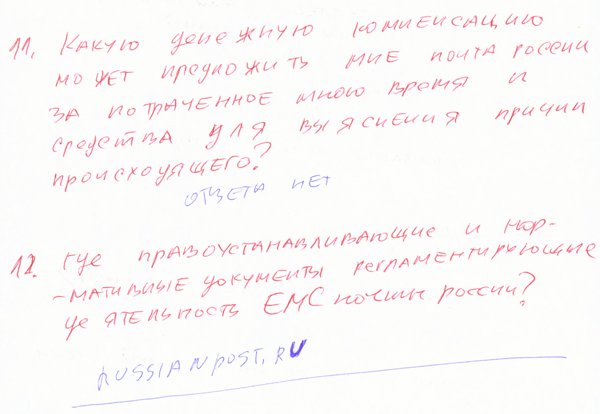 11. Какую денежную компенсацию
может предложить мне почта россии
за потраченное мною время и
средства для выяснения причин
происходящего?
ответа нет
12. Где правоустанавливающие и нор-
-мативные документы регламентирующие
деятельность ЕМС почты россии?
RUSSIANPOST.RU